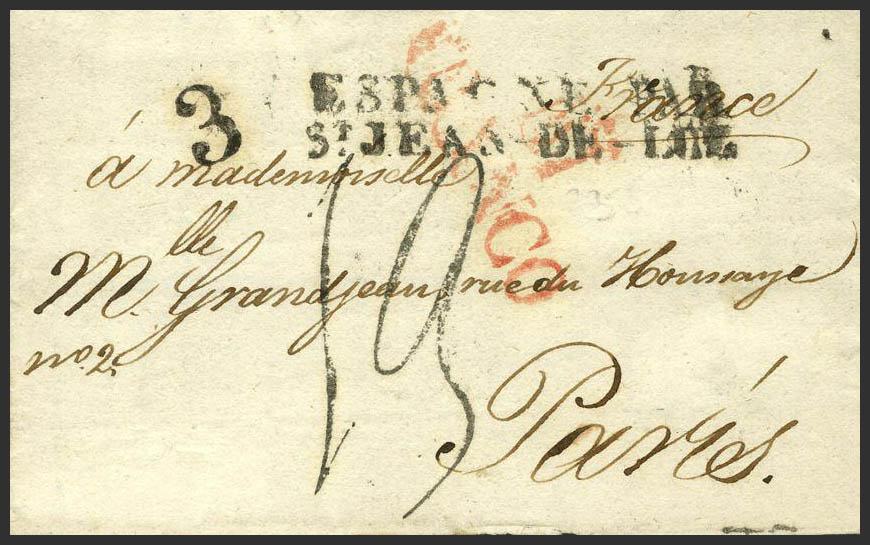 3
ESPAGNE PAR
ST JEAN-DE-LUZ
France
à mademoiselle
Mlle Grandjean, rue du Houssaye
no. 2.
19
París.